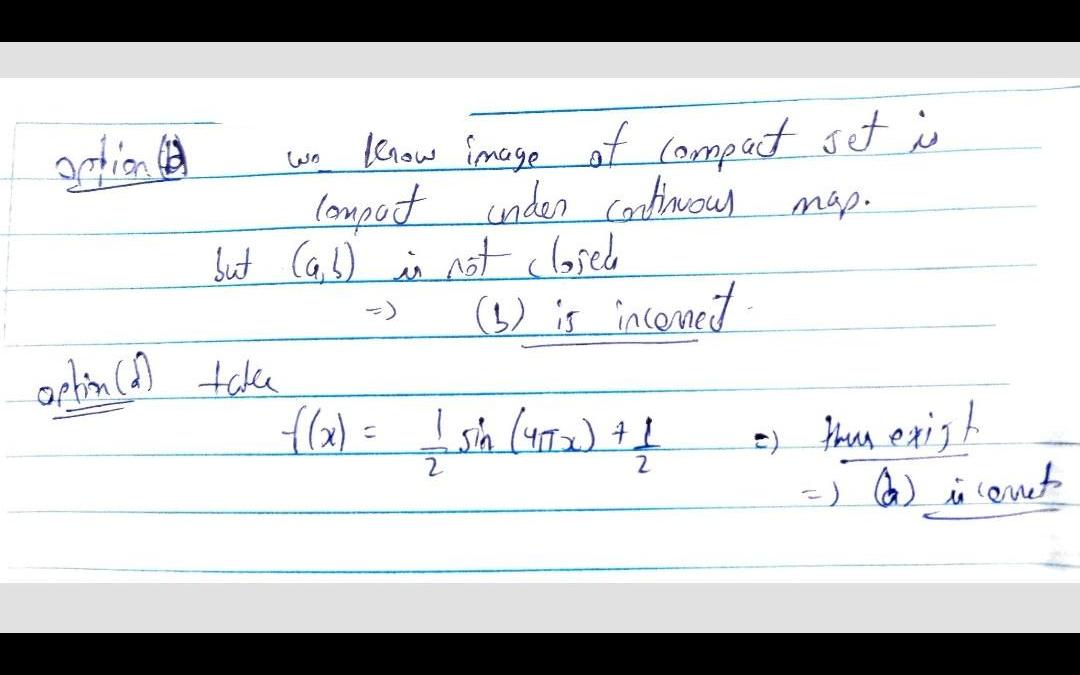 option (b) we know image of compact set is
compact under continuous map.
but (a,b) is not closed
=> (b) is incorrect.
option (d) take
f(x) = 1/2 sin (4πx) + 1/2 => thus exist
=> (a) is correct